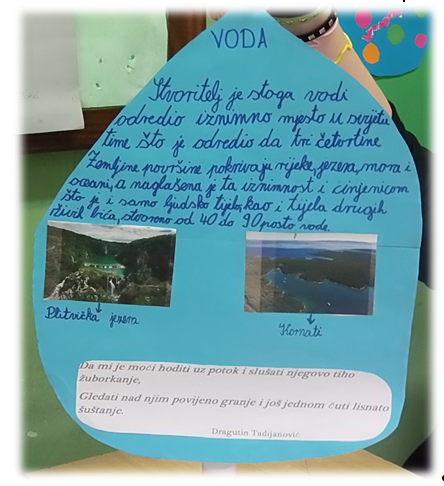 VODA
Stvoritelj je stoga vodi
odredio iznimno mjesto u svijetu
time što je odredio da tri četvrtine
Zemljine površine pokrivaju rijeke, jezera, mora i
oceani, a naglašena je ta iznimnost i činjenicom
što je i samo ljudsko tijelo, kao i tijela drugih
živih bića, stvoreno od 40 do 90 posto vode.
Plitvička jezera
Kornati
Da mi je moći hoditi uz potok i slušati njegovo tiho
žuborkanje,
Gledati nad njim povijeno granje i još jednom čuti lisnato
šuštanje.
Dragutin Tadijanović